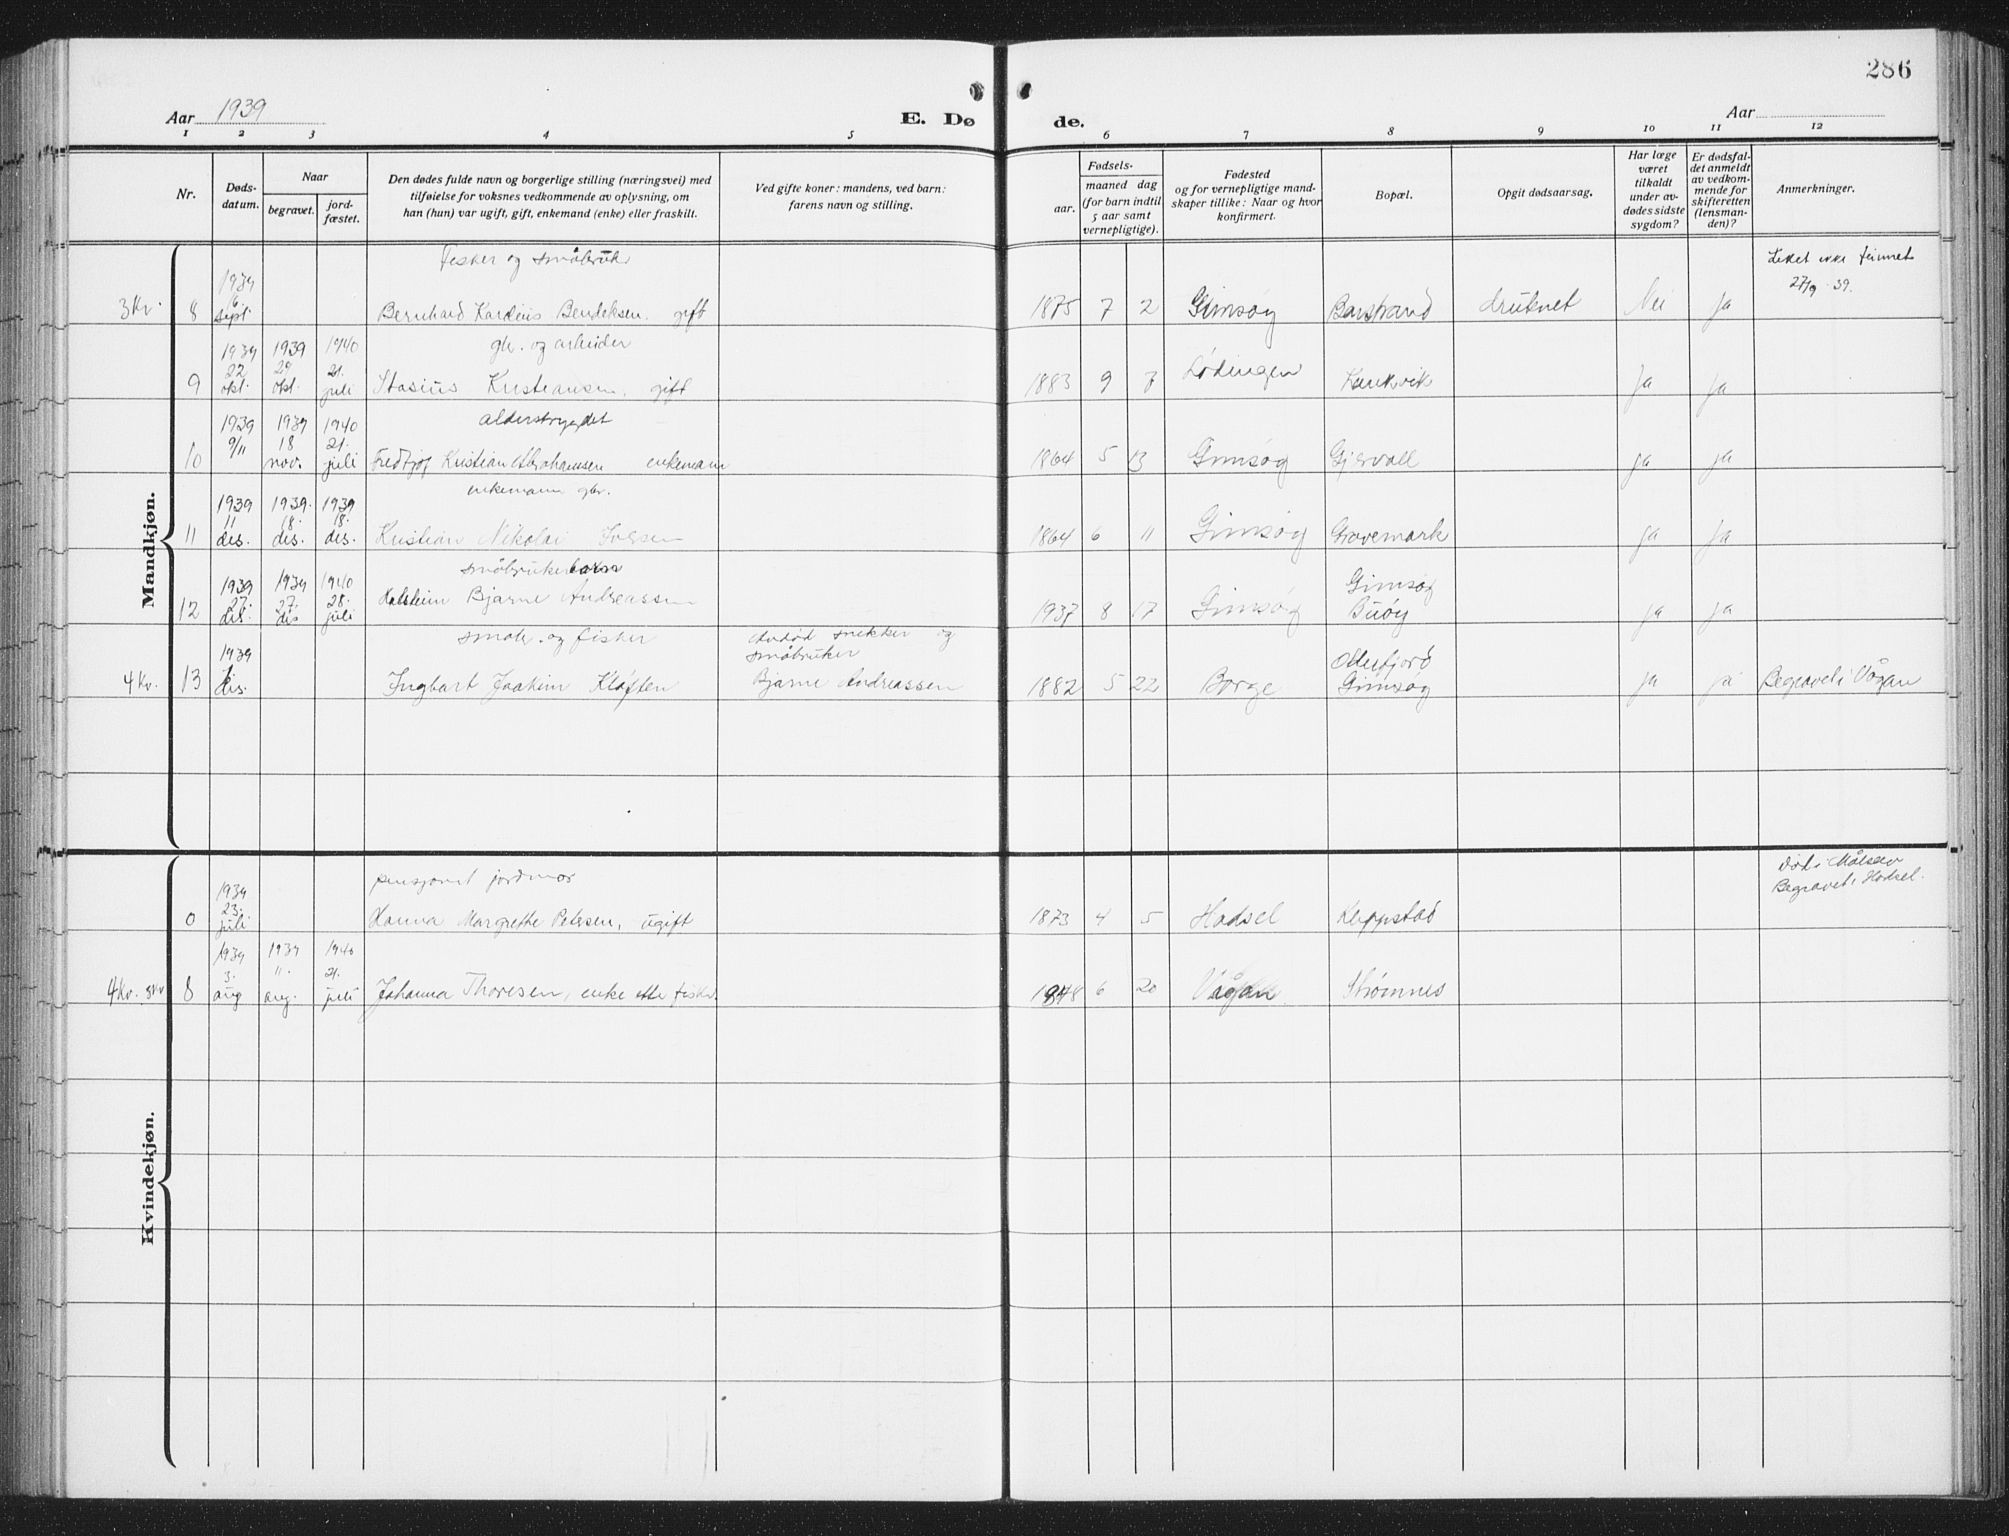 286
Aar 1939
E. Dø de.
Aar
1 2 3 4 5 6 7 8 9 10 11 12
Nr.
Døds-
datum.
Naar
begravet.
jord-
fæstet.
Den dødes fulde navn og borgerlige stilling (næringsvei) med
tilføielse for voksnes vedkommende av oplysning, om
han (hun) var ugift, gift, enkemand (enke) eller fraskilt.
Ved gifte koner: mandens, ved barn:
farens navn og stilling.
Fødsels-
aar.
maaned dag
(for barn indtil
5 aar samt
vernepligtige).
Fødested
og for vernepligtige mand-
skaper tillike: Naar og hvor
konfirmert.
Bopæl.
Opgit dødsaarsag.
Har læge
været
tilkaldt
under av-
dødes sidste
sygdom?
Er dødsfal-
det anmeldt
av vedkom-
mende for
skifteretten
(lensman-
den)?
Anmerkninger.
Mandkjøn.
Fisker og småbruk
Liket ikke funnet
27/9 39.
3 Kv. 8 1939 6 sept. Bernhard Bendeksen. gift 1875 7 2 Gimsøy Barstrand druknet Nei ja
gbr. og arbeider
9 1939 22 okt. 1939 29 okt. 1940 21. juli Stasius Kristiansen, gift 1883 9 7 Lødingen ja ja
alderstrygdet
10 1939 9/11 1939 18 nov. 1940 21. juli Fredtjof Kristian Abrahamsen enkemann 1864 5 13 Gimsøy Gjervall ja ja
enkemann gbr.
11 1939 11 des. 1939. 18. des. 1939 18. des. Kristian Nikolai Iversen 1864 6 11 Gimsøy Gravermark ja ja
småbrukerbarn
12 1939 27. des. 1939 27. des 1940 28. juli Halstein Bjarne Andreassen 1937 8 17 Gimsøy Gimsøy Buøy ja ja
småbr. og fisker
Avdød snekker og
småbruker
Bjarne Andreassen
4 Kv. 13 1939 des. Ingbart Joakim Kløften 1882 5 22 Borge Gimsøy ja ja Begravet i Vågan
Kvindekjøn.
pensjonert jordmor
Død i Målselv
Begravet i Hadsel.
0 1939 23. juli Hanna Margrethe Petersen, ugift 1873 4 5 Hadsel Kleppstad
4 Kv. 3 Kv 8 1939 3. aug 1939 11. aug. 1940 21. juli Johanna Thoresen, enke etter fisker. 1848 6 20 Vågan Strømnes